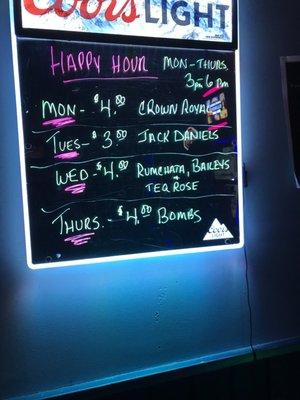 Coors LIGHT
HAPPY HOUR MON-THURS.
3pm-6pm
MON- $4.00 CROWN ROYAL
TUES- $3.50 JACK DANIELS
WED- $4.00 RUMCHATA, BAILEYS
+ TEQ ROSE
THURS.- $4.00 BOMBS
Coors
LIGHT